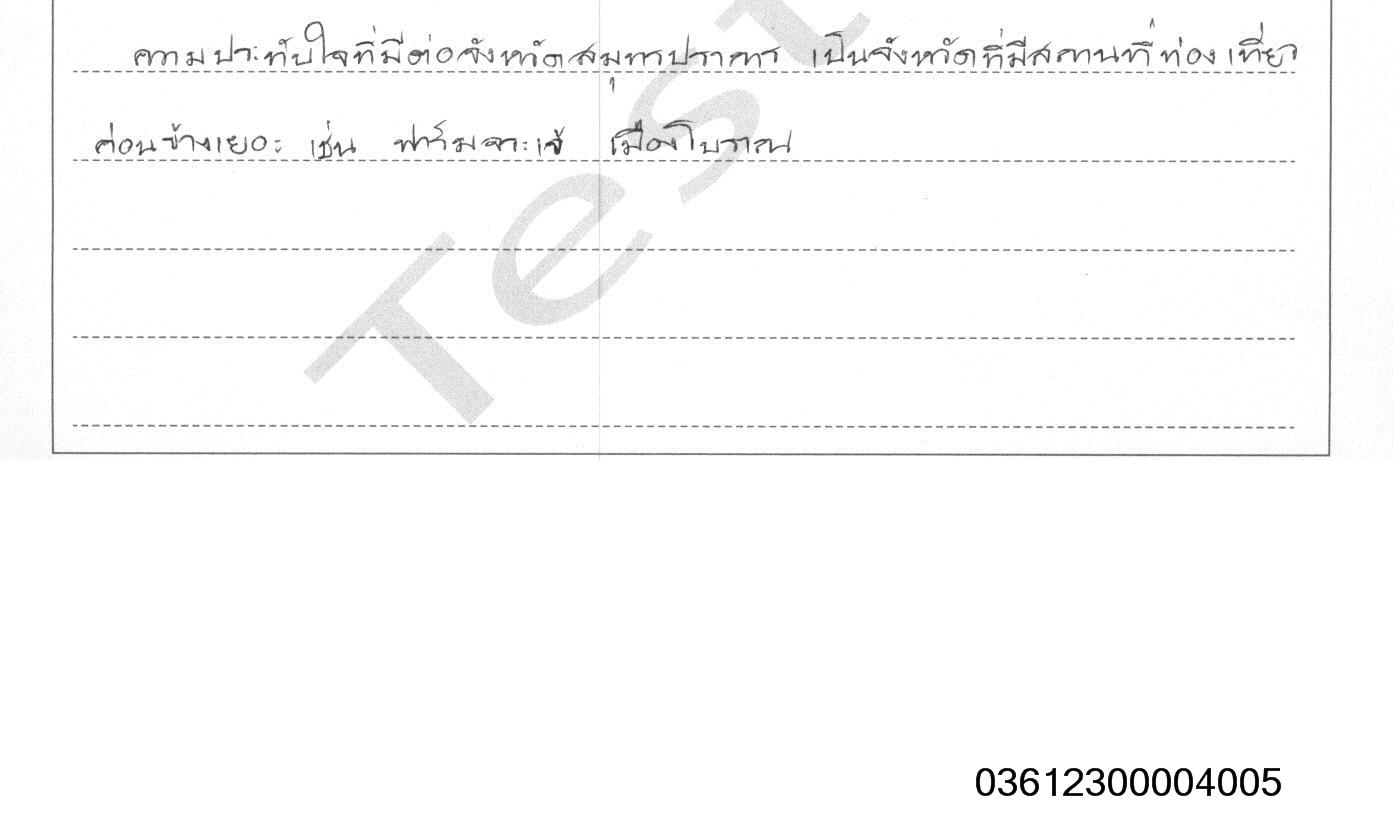 ความประทับใจที่มีต่อจังหวัดสมุทรปราการ เป็นจังหวัดที่มีสถานที่ท่องเที่ยว
ค่อนข้างเยอะ เช่น ฟาร์มจระเข้ เมืองโบราณ
Test
03612300004005